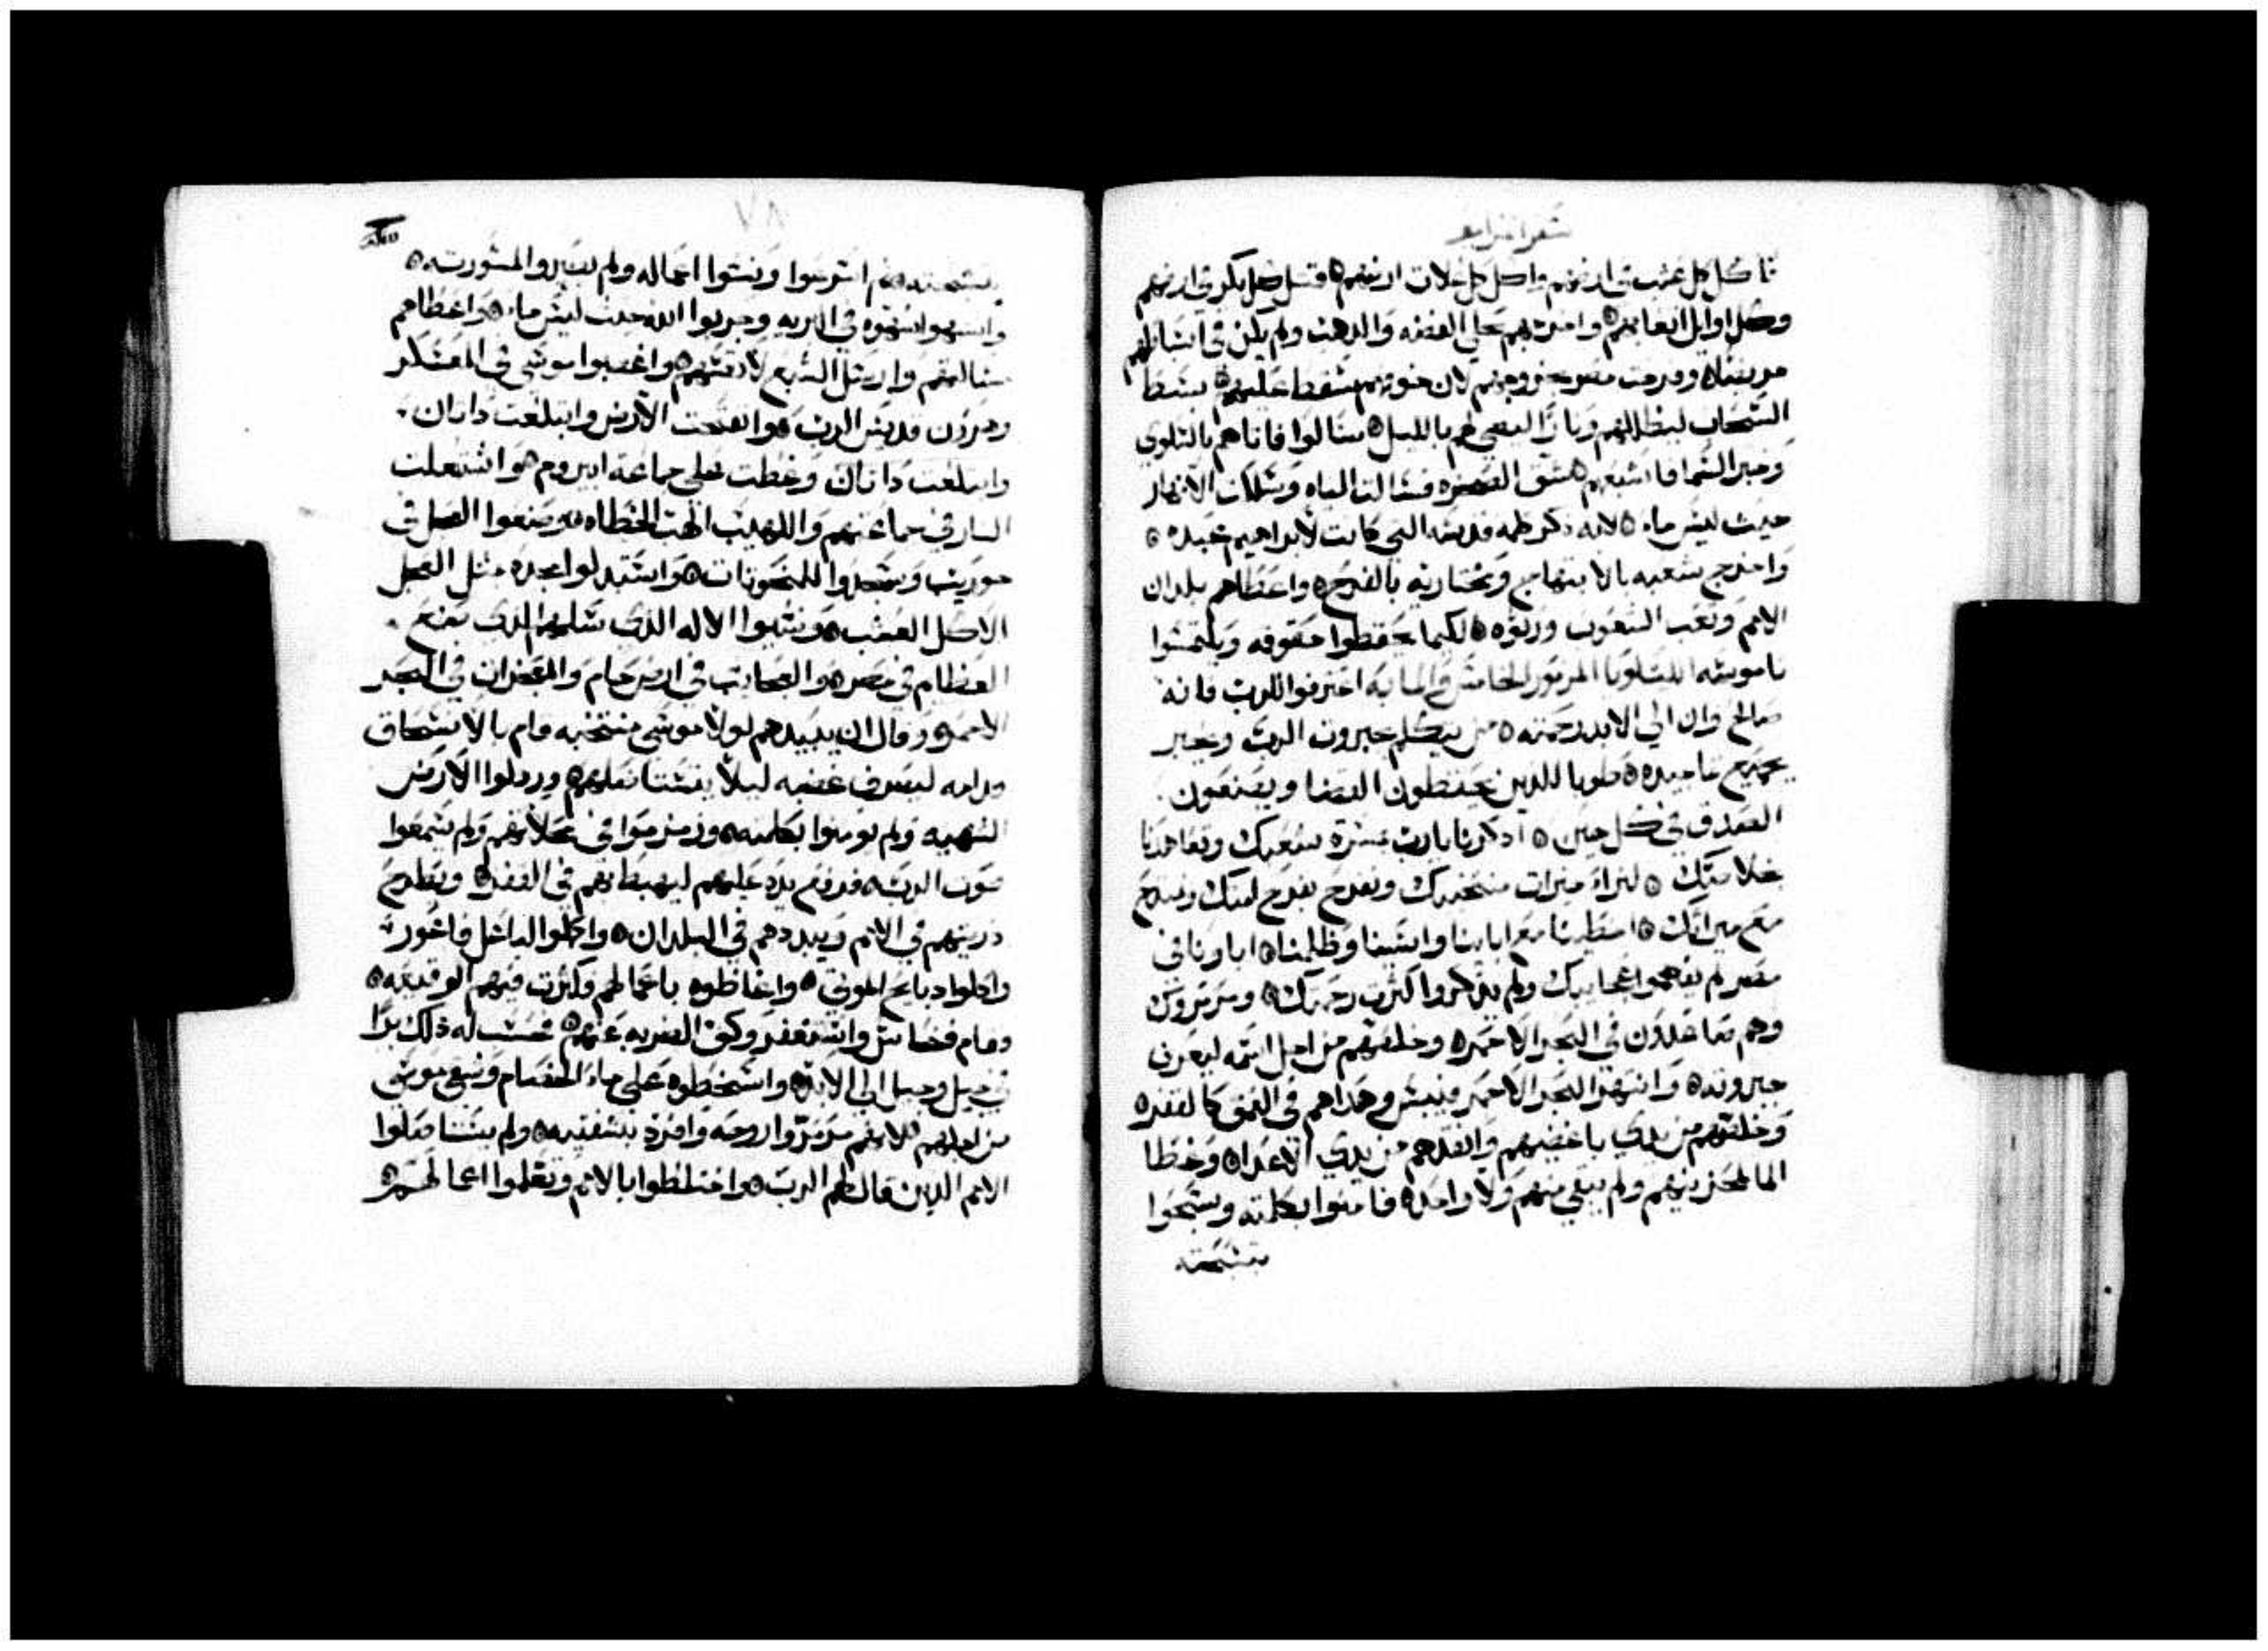 كل عشب في ارضهم واكل كل غلات ارضهم ٥ قتل كل بكر في ارضهم
وكل اوايل اتعابهم ٥ واخرجهم بحلي الفضه والدهب ولم يكن في اسباطهم
مريضاه وفرحت مصر بخروجهم لان خوفهم سقط عليهم ٥ بسط
السحاب ليظللهم ونارًا لتضي لهم بالليل ٥ سالوا فاتاهم بالسلوي
وخبز السما فاشبعهم ٥ شق الصخره فسالت المياه وسلكت الانهار
حيث ليس ماء ٥ لانه ذكر كلمه قدسه التي كانت لابراهيم عبده ٥
واخرج شعبه بالابتهاج ومختاريه بالفرح ٥ واعطاهم بلدان
الامم وتعب الشعوب ورثوه ٥ لكيما يحفظوا حقوقه ويلتمسوا
ناموسه الليلويا المزمور الخامس والمايه اعترفوا للرب فانه
صالح وان الي الابد رحمته ٥ من يتكلم جبروت الرب ويخبر
بجميع تماجيده ٥ طوبا للذين يحفظون القضا ويصنعون
العدل في كل حين ٥ اذكرنا يارب بمسرة شعبك وتعاهدنا
بخلاصك ٥ لنراء خيرات منتخبيك ونفرح بفرح امتك ونمتدح
مع ميراثك ٥ اخطينا مع ابايـنا واثمنا وظلمنا ٥ اباونا في
مصر لم يفهموا عجايبك ولم يذكروا كثرت رحمتك ٥ ومرمروك
وهم صاعدون في البحر الاحمر ٥ وخلصهم من اجل اسمه ليعرف
جبروته ٥ وانتهر البحر الاحمر فيبس وهداهم في العمق كالقفر ٥
وخلصهم من يدي باغضيهم وانقدهم من يدي الاعداء ٥ وغطا
الما محزنيهم ولم يبقي منهم ولا واحد ٥ فامنوا بكلمته وسبحوا
بتسبحته
٧٨
بتسبحته ثم اسرعوا ونسوا اعماله ولم يصبروا لمشورته ٥
واشتهوا شهوه في البريه وجربوا الله حيث ليس ماء ٥ واعطاهم
سالتهم وارسل الشبع لانفسهم ٥ واغضبوا موسي في المعسكر
وهرون قديس الرب ٥ وانفتحت الارض وابتلعت داتان
وابتلعت داتان وغطت على جماعة ابيروم ٥ واشتعلت
النار في جماعتهم واللهيب الهب الخطاه ٥ وصنعوا العجل في
حوريب وسجدوا للمنحوتات ٥ واستبدلوا مجده مثل العجل
الاكل العشب ٥ ونسيوا الاله الذي خلصهم الذي صنع
العظام في مصر ٥ والعجايب في ارض حام والمعجزات في البحر
الاحمر ٥ وقال ان يبيدهم لولا موسي منتخبه قام بالانسحاق
قدامه ليصرف غضبه ليلا يستاصلهم ٥ ورذلوا الارض
الشهيه ولم يومنوا بكلمته ٥ وزمزموا في محلاتهم ولم يسمعوا
صوت الرب ٥ فرفع يده عليهم ليهبطهم في القفر ٥ ويطرح
ذريتهم في الامم ويبددهم في البلدان ٥ واكملوا لباعل فاغور
واكلوا دبايح الموتي ٥ واغاظوه باعمالهم وكثرت فيهم الوقيعه ٥
وقام فنحاس واستغفر وكف الضربه عنهم ٥ فحسب له ذلك برًا
في جيل وجيل الي الابد ٥ واسخطوه على ماء الخصام وتوجع موسي
من اجلهم لانهم مرمروا روحه وافرز بشفتيه ٥ ولم يستاصلوا
الامم الذين قال لهم الرب ٥ واختلطوا بالامم وتعلموا اعمالهم ٥